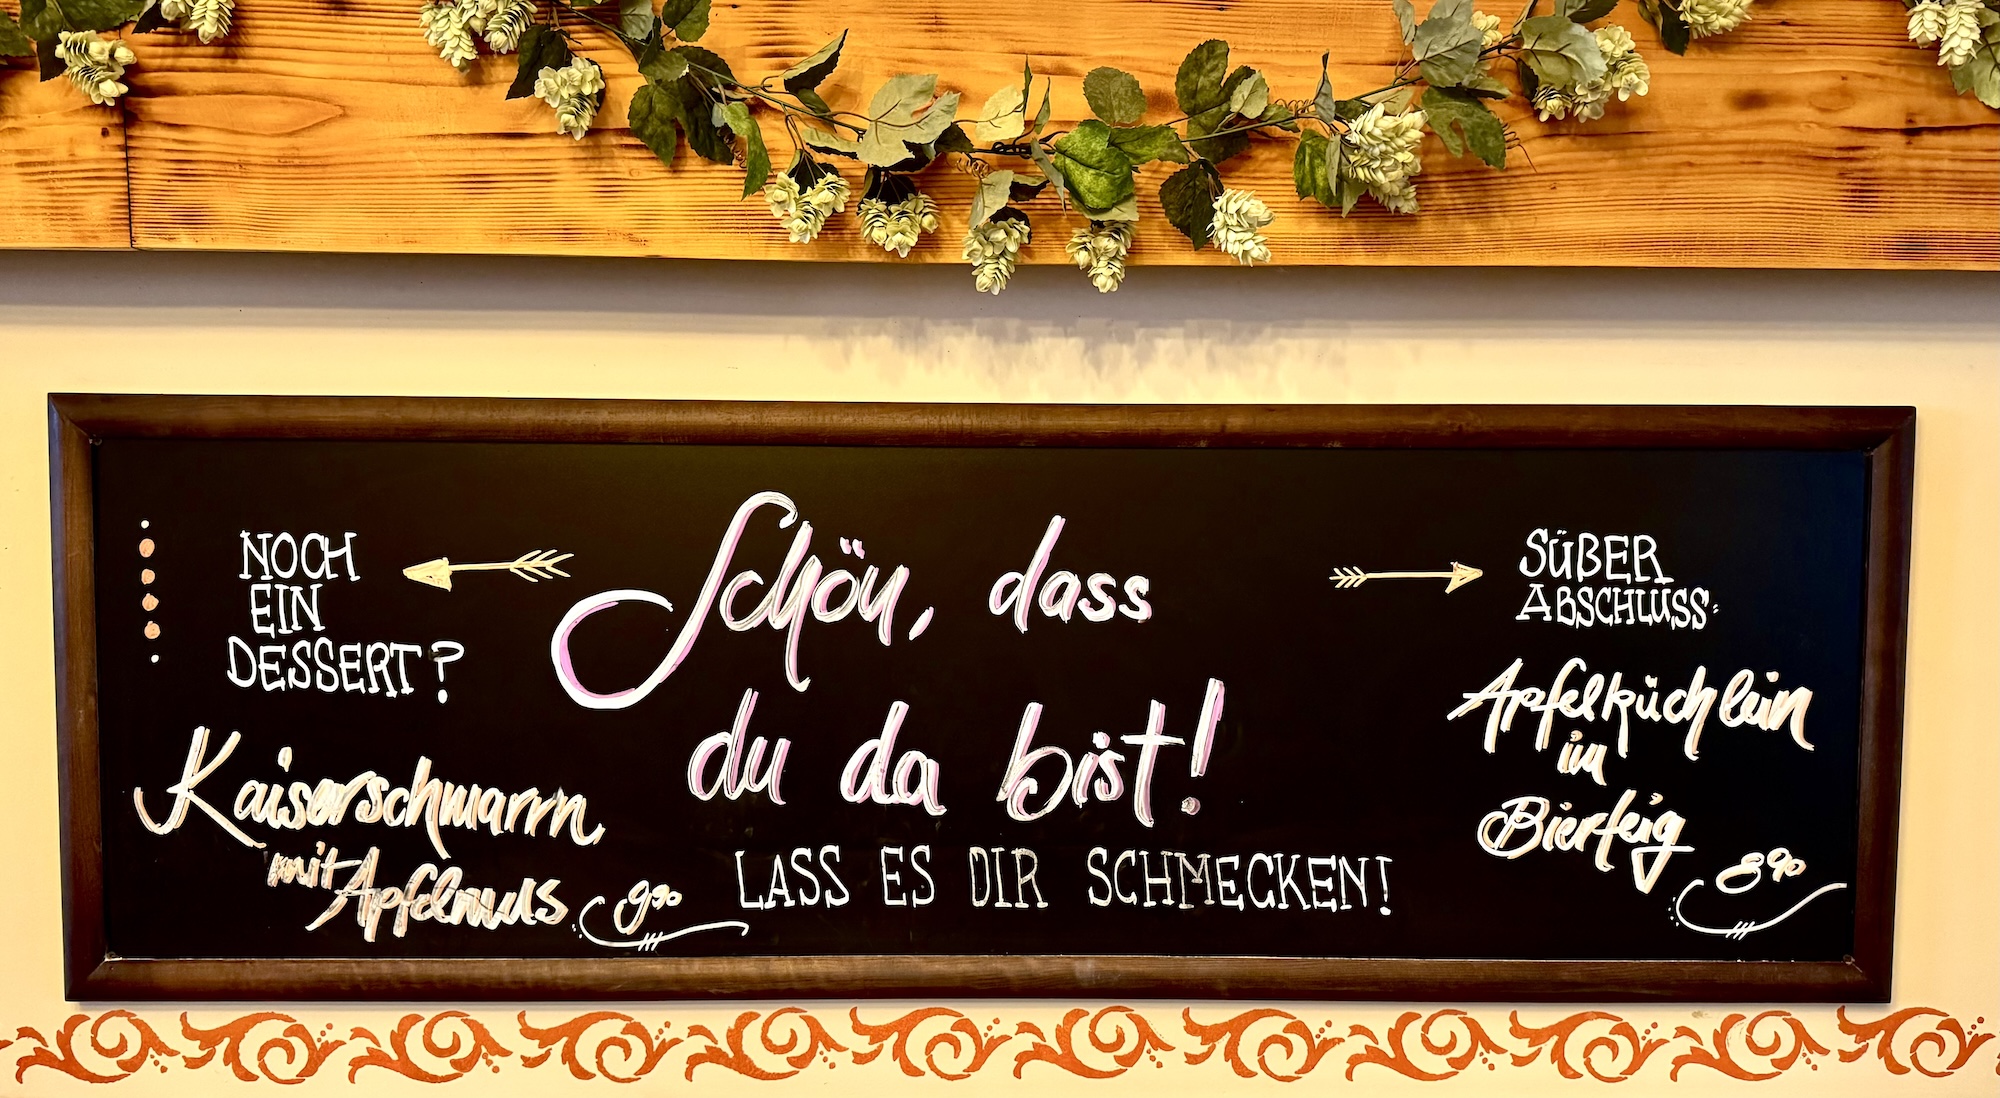 NOCH
EIN
DESSERT?
Kaiserschmarrn
mit Apfelmus
9,90
Schön, dass
du da bist!
LASS ES DIR SCHMECKEN!
SÜßER
ABSCHLUSS:
Apfelküchlein
im
Bierteig
8,90